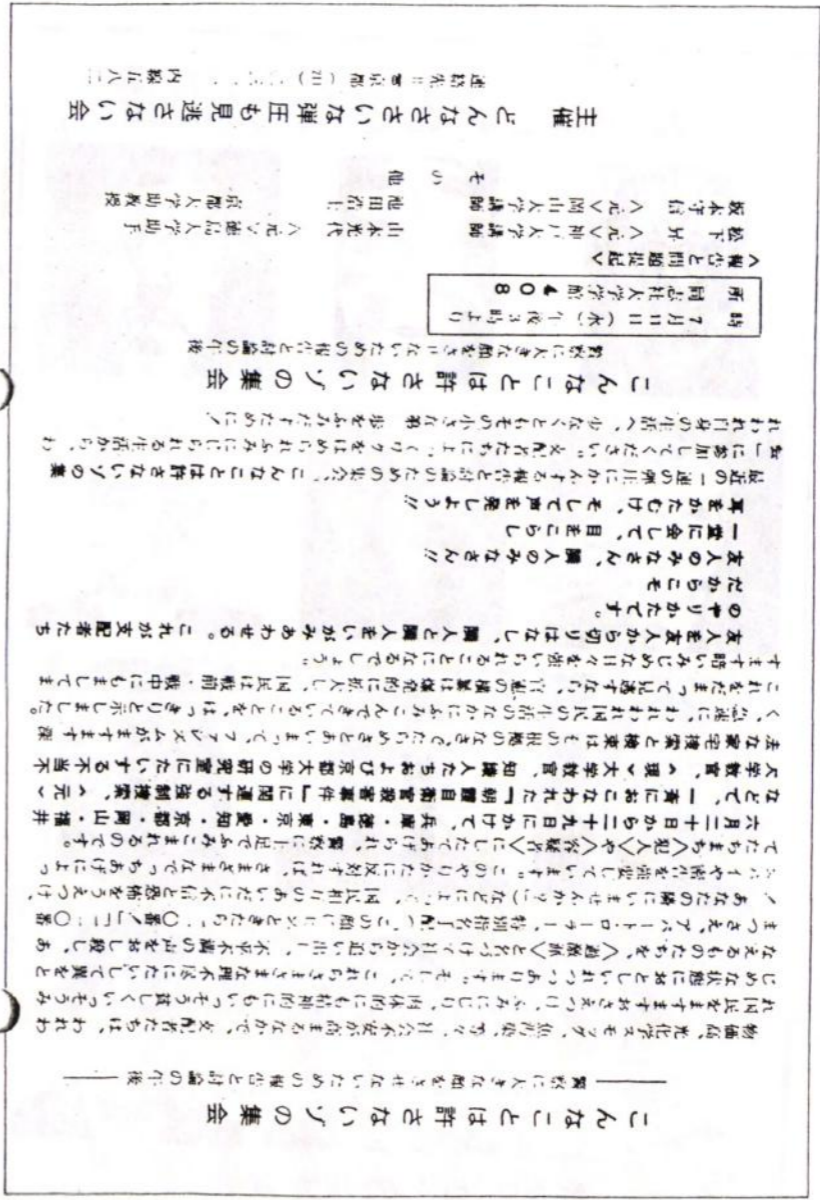 こんなことは許さないゾの集会
―― 警察に大きな顔をさせないための報告と討論の午後 ――
物価高、光化学スモッグ、魚汚染、等々、社会不安が高まるなかで、支配者たちは、われわ
れ国民をますますおさえつけ、ふみにじり、肉体的にも精神的にもいっそう貧しくいっそうみ
じめな状態におとしいれつつあります。そして、これらさまざまな理不尽にたいして異をと
なえるものたちを、〈過激派〉と名づけて社会から追い出し、不平不満の声をおし殺し、あ
つまさえ、アパート・ローラー、特別指名手配（「この顔にピンときたら一一〇番／」「一一〇番
／あなたの隣にいませんか？」）などによって、国民相互のあいだに不信と恐怖をうえつけ、
スパイや密告を強要しています。このやりかたに反対すれば、さまざまなでっちあげによっ
てたちまち〈犯人〉や〈容疑者〉にしたてあげられ、警察に土足でふみこまれるのです。
六月二十二日から二十九日にかけて、兵庫・徳島・東京・愛知・京都・岡山・福井
などで、一斉におこなわれた『朝霞自衛官殺害事件』に関連する強制捜索、〈元〉
大学教官、〈現〉大学教官、知識人たちおよび京都大学の研究室にたいする不当不
法な家宅捜索と東検はその根拠のなさ、でたらめさとあいまって、ファシズムがますます深
く、急速に、われわれ国民の生活のなかにふみこんできていることを、はっきりと示しました。
これをだまって見逃すなら、官憲の横暴は爆発的に拡大し、国民は戦前・戦中にもまして
ますます暗いみじめな日々を強いられることになるでしょう。
友人を友人から切りはなし、隣人と隣人をいがみあわせる。これが支配者たち
のやりかたです。
だからこそ
友人のみなさん、隣人のみなさん！！
一堂に会して、目をこらし
耳をかたむけ、そして声を発しよう！！
最近の一連の弾圧にかんする報告と討論のための集会、こんなことは許さないゾの集
会に参加してください。支配者たちによってワクをはめられふみにじられる生活から、わ
れわれ自身の生活へ、少なくともその小さな第一歩をふみだすために！
こんなことは許さないゾの集会
警察に大きな顔をさせないための報告と討論の午後
時 7月11日（水）午後3時より
所 同志社大学学館 408
〈報告と問題提起〉
松下 昇 〈元〉神戸大学講師 山本光代 〈元〉徳島大学助手
坂本守信 〈元〉岡山大学講師 池田浩士 京都大学助教授
その他
主催 どんなささいな弾圧も見逃さない会
連絡先＝京都（ 内線五八